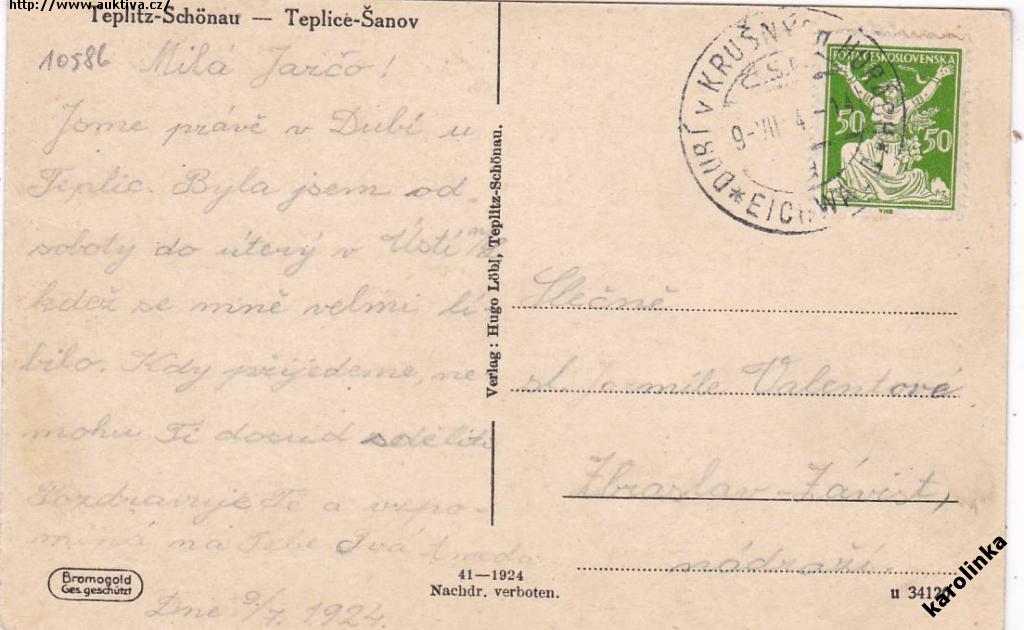 http://www.auktiva.cz/
Teplitz-Schönau — Teplice-Šanov
10586
Milá Jarčo!
Jsme právě v Dubí u
Teplic. Byla jsem od
soboty do úterý v Ústí n/L
kdež se mně velmi lí-
bilo. Kdy přijedeme, ne-
mohu Ti dosud sděliti
Pozdravuje Tě a vzpo-
míná na Tebe Tvá
Dne 9/7 1924.
Bromogold
Ges. geschützt
Verlag: Hugo Löbl, Teplitz-Schönau.
41—1924
Nachdr. verboten.
DUBÍ V KRUŠNÝCH HORÁCH
Č.S.
9-VII
* EICHWALD *
POŠTA ČESKOSLOVENSKA
50 50
Slečně
sl. Jarmile Valentové
Zbraslav-Závist,
nádraží.
u 3412
karolinka